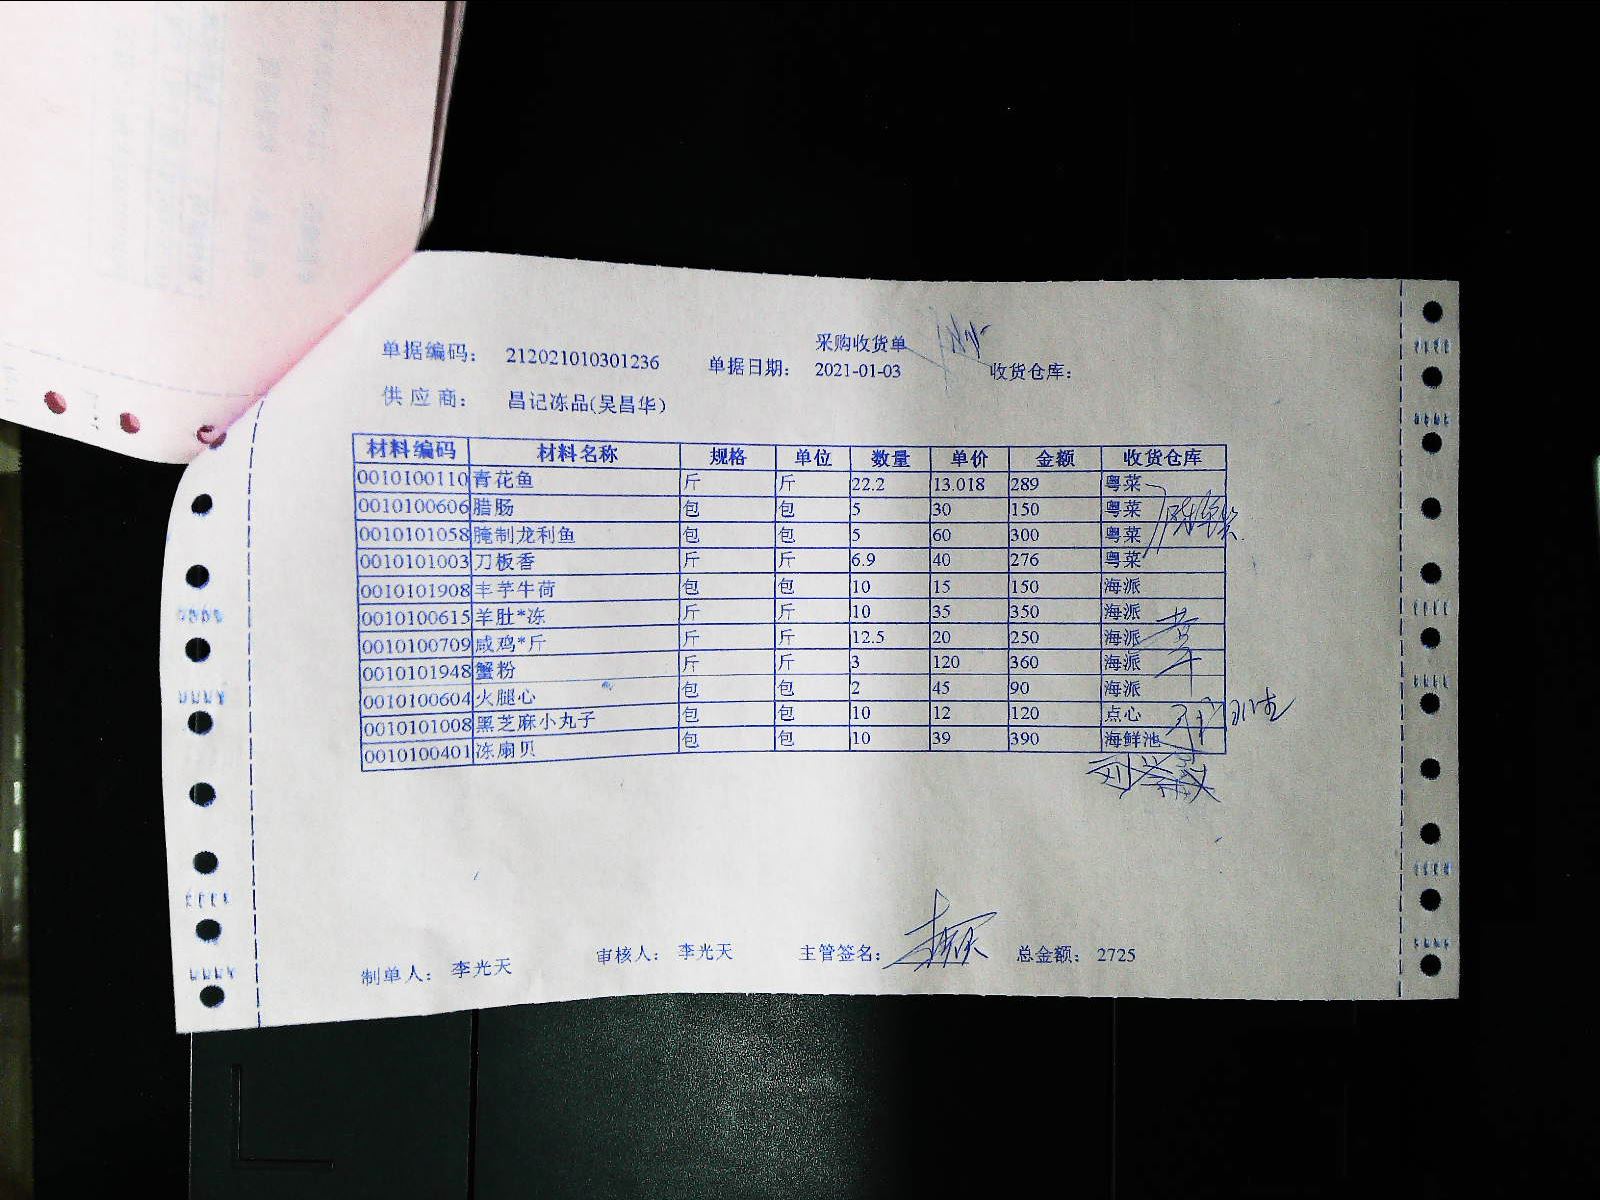 采购收货单
单据编码： 212021010301236 单据日期： 2021-01-03 收货仓库：
供应商： 昌记冻品(吴昌华)
材料编码 材料名称 规格 单位 数量 单价 金额 收货仓库
0010100110 青花鱼 斤 斤 22.2 13.018 289 粤菜
0010100606 腊肠 包 包 5 30 150 粤菜
0010101058 腌制龙利鱼 包 包 5 60 300 粤菜
0010101003 刀板香 斤 斤 6.9 40 276 粤菜
0010101908 丰芋牛荷 包 包 10 15 150 海派
0010100615 羊肚*冻 斤 斤 10 35 350 海派
0010100709 咸鸡*斤 斤 斤 12.5 20 250 海派
0010101948 蟹粉 斤 斤 3 120 360 海派
0010100604 火腿心 包 包 2 45 90 海派
0010101008 黑芝麻小丸子 包 包 10 12 120 点心
0010100401 冻扇贝 包 包 10 39 390 海鲜池
制单人： 李光天 审核人： 李光天 主管签名： 总金额： 2725